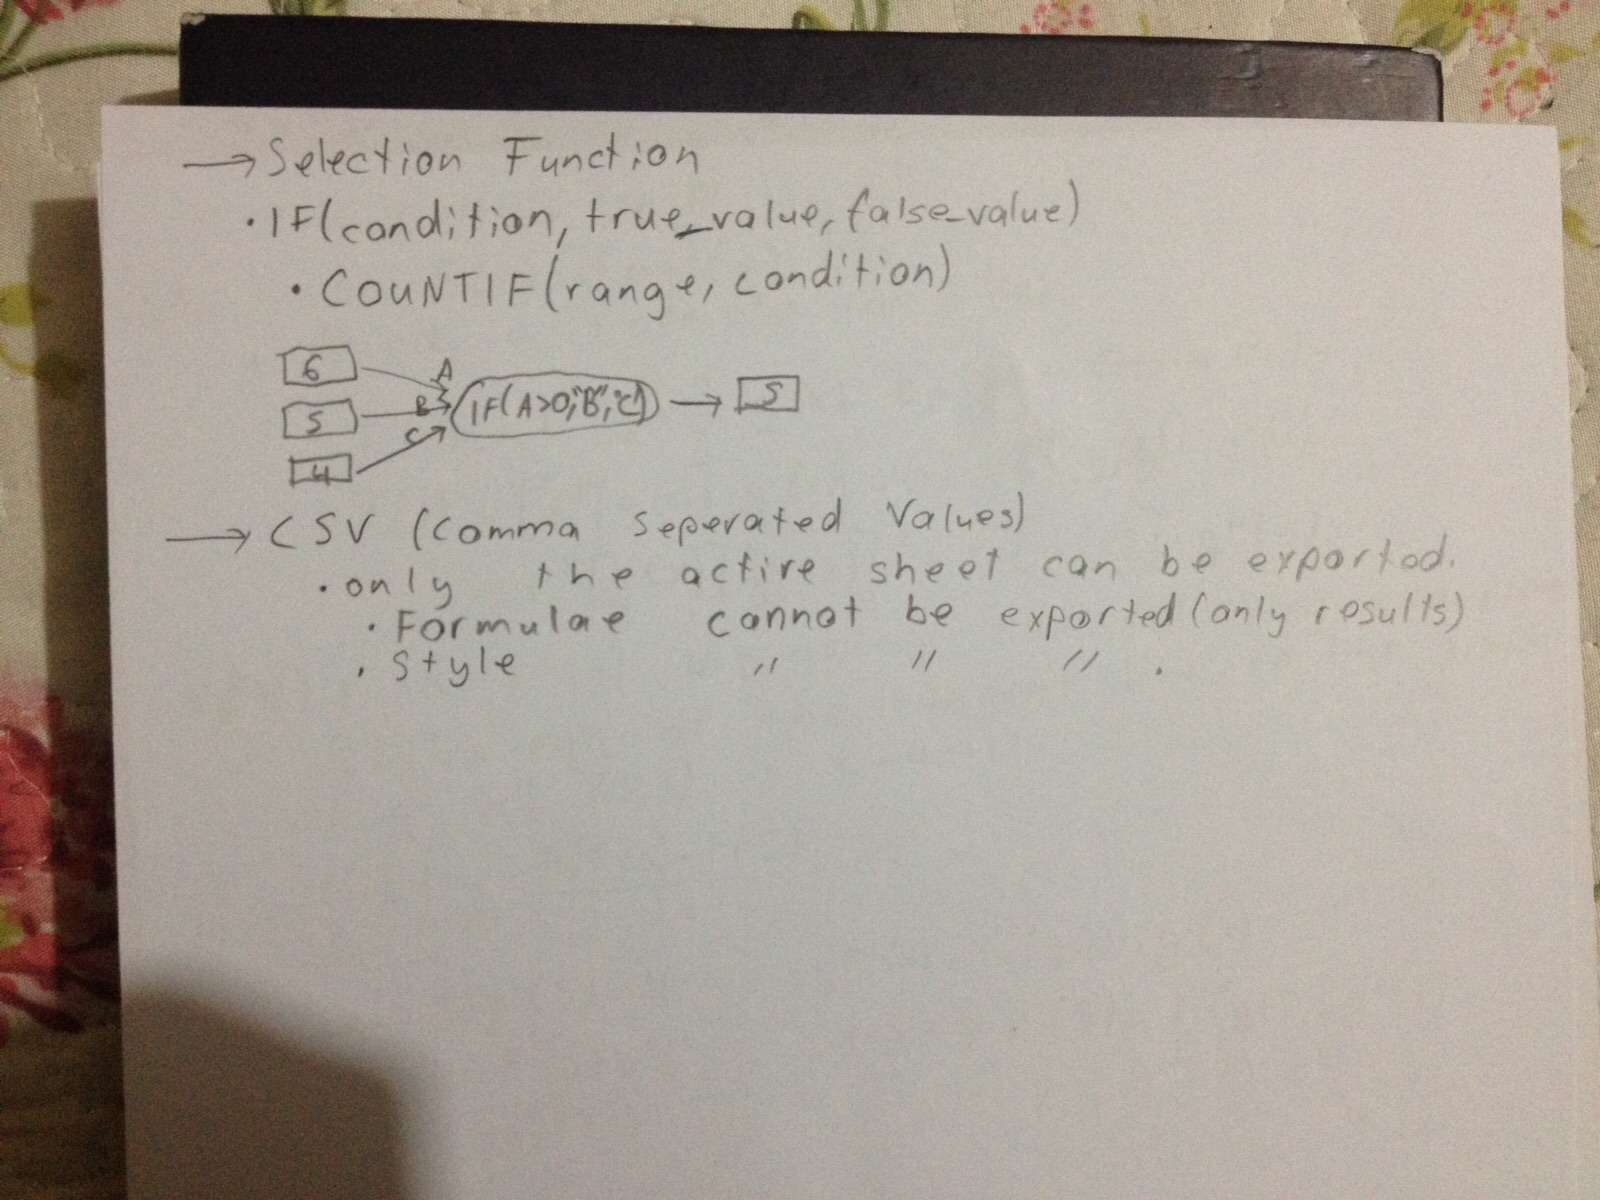 → Selection Function
· IF(condition, true_value, false_value)
· COUNTIF(range, condition)
6
A
5
B
IF(A>0;"B","C")
→ 5
C
4
→ CSV (Comma Seperated Values)
· only the active sheet can be exported.
· Formulae cannot be exported (only results)
· Style " " " .